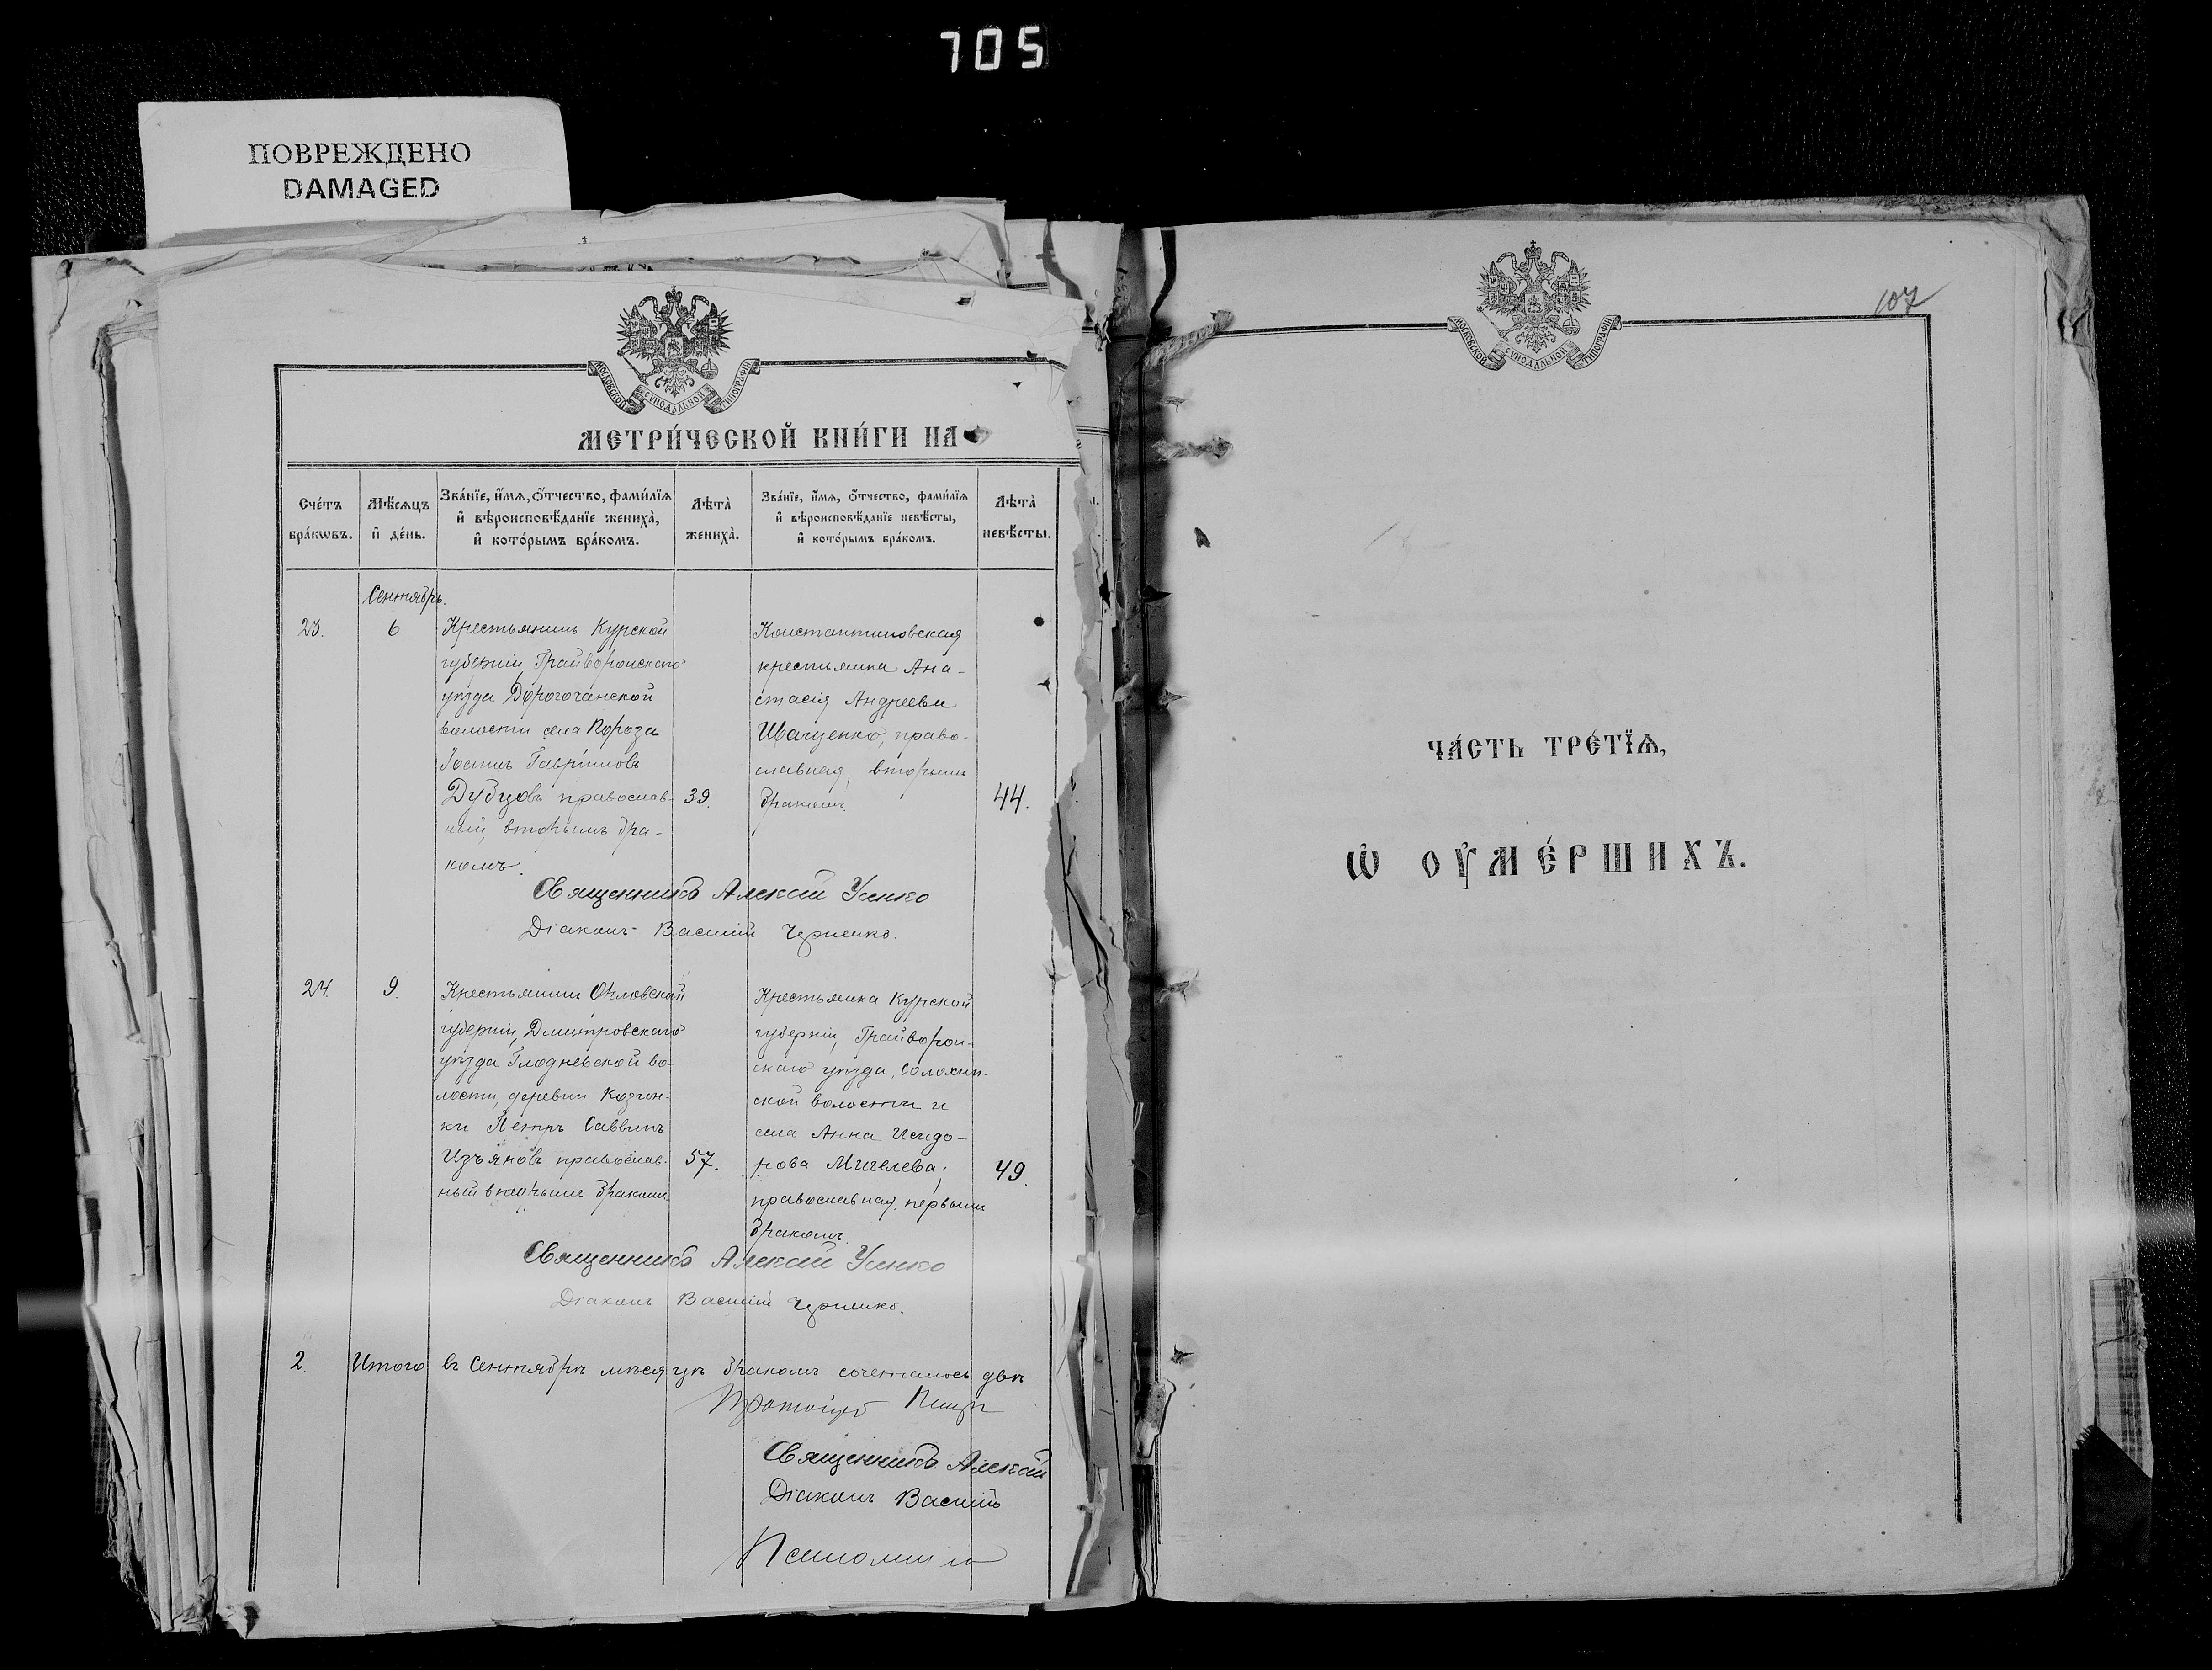 705
ПОВРЕЖДЕНО
DAMAGED
МОСКОВСКОЙ СѴНОДАЛЬНОЙ ТИПОГРАФІИ
МЕТРИ́ЧЕСКОЙ КНИ́ГИ НА
Сче́тъ бра́кѡвъ.
Мѣ́сѧцъ и҆ де́нь.
Зва́нїе, и҆́мѧ, ѻ҆́тчество, фами́лїѧ
и҆ вѣроисповѣ́данїе жениха̀,
и҆ кото́рымъ бра́комъ.
Лѣта̀ жениха̀.
Зва́нїе, и҆́мѧ, ѻ҆́тчество, фами́лїѧ
и҆ вѣроисповѣ́данїе невѣ́сты,
и҆ кото́рымъ бра́комъ.
Лѣта̀ невѣ́сты.
Сентябрь.
23.
6
Крестьянинъ Курской
губерніи, Грайворонскаго
уѣзда Дорогочанской
волости села Пороза
Гавріиловъ
Дубцовъ православ-
ный, вторымъ бра-
комъ.
39.
Константиновская
крестьянка Ана-
стасія Андреева
Иващенко, право-
славная, вторымъ
бракомъ.
44.
Священникъ Алексій Усенко
Діаконъ Василій Черненко.
24.
9.
Крестьянинъ Орловской
губерніи, Дмитровскаго
уѣзда Глодневской во-
лости, деревни Козин-
ки Петръ Саввинъ
Изъяновъ православ-
ный вторымъ бракомъ
57.
Крестьянка Курской
губерніи, Грайворон-
скаго уѣзда, Солохин-
ской волости и
села Анна Исидо-
рова
православная, первымъ
бракомъ.
49.
Священникъ Алексій Усенко
Діаконъ Василій Черненко.
2. Итого въ Сентябрѣ мѣсяцѣ бракомъ сочеталось двѣ
Священникъ Алексій
Діаконъ Василій
107
МОСКОВСКОЙ СѴНОДАЛЬНОЙ ТИПОГРАФІИ
ЧА́СТЬ ТРЕ́ТЇѦ,
Ѡ҆ ОУ҆МЕ́РШИХЪ.